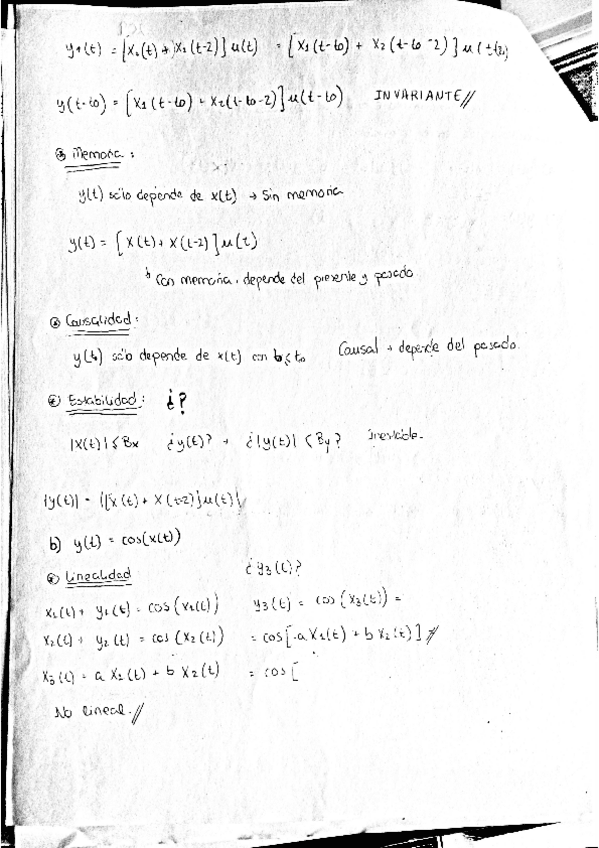 y1(t) = [x1(t) + x1(t-2)] u(t) = [x1(t-to) + x2(t-to-2)] u(t)
y(t-to) = [x1(t-to) + x2(t-to-2)] u(t-to) INVARIANTE//
Memoria:
y(t) sólo depende de x(t) → Sin memoria
y(t) = [x(t) + x(t-2)] u(t)
Con memoria, depende del presente y pasado
Causalidad:
y(to) sólo depende de x(t) con t ≤ to Causal → depende del pasado.
Estabilidad: ¿?
|x(t)| ≤ Bx ¿y(t)? → ¿|y(t)| ≤ By?
|y(t)| = |[x(t) + x(t-2)] u(t)|
b) y(t) = cos(x(t))
Linealidad ¿y3(t)?
x1(t) → y1(t) = cos(x1(t)) y3(t) = cos(x3(t)) =
x2(t) → y2(t) = cos(x2(t)) = cos[a x1(t) + b x2(t)]//
x3(t) = a x1(t) + b x2(t) = cos[
No lineal.//